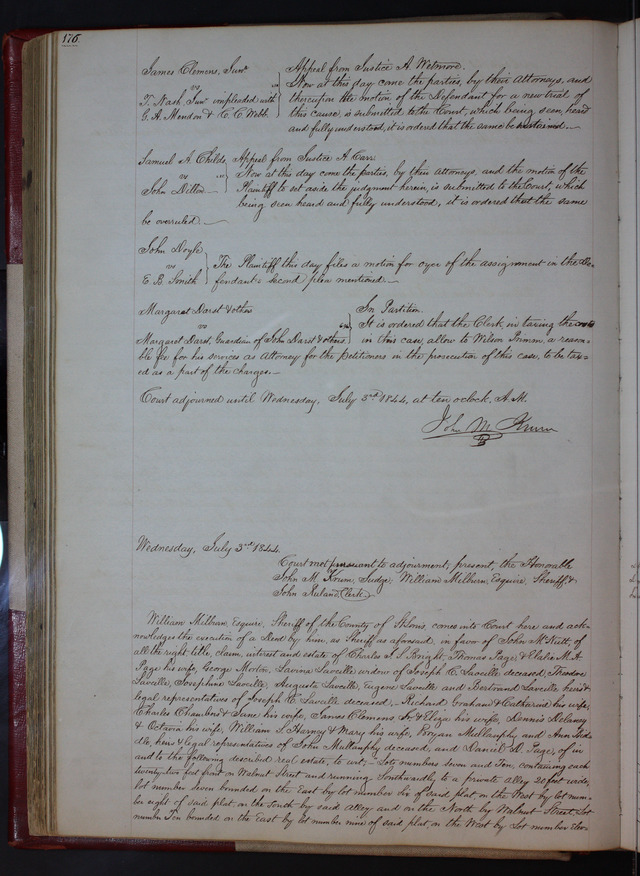 176.
James Clemens, Junr. } Appeal from Justice A Wetmore.
vs } Now at this day come the parties, by their Attorneys, and
T. Nash, Junr impleaded with } thereupon the motion of the Defendant for a new trial of
G. A. Mendon & C. C. Webb } this cause, is submitted to the Court, which being seen, heard
and fully understood, it is ordered that the same be sustained.
Samuel A. Childs, Appeal from Justice A Carr.
vs } Now at this day come the parties, by their attorneys, and the motion of the
John Dillon } Plaintiff to set aside the judgment herein, is submitted to the Court, which
being seen heard and fully understood, it is ordered that the same
be overruled.
John Doyle
vs } The Plaintiff this day files a motion for oyer of the assignment in the De-
E. B. Smith } fendants second plea mentioned.
Margaret Darst & others } In Partition.
vs } It is ordered that the Clerk, in taxing the costs
Margaret Darst, Guardian of John Darst & others } in this case, allow to Wilson Primm, a reasona-
ble fee for his services as Attorney for the petitioners in the prosecution of this case, to be tax-
ed as a part of the charges.
Court adjourned until Wednesday, July 3rd 1844, at ten oclock, A.M.
John M Krum
Wednesday, July 3rd 1844.
Court met pursuant to adjournment; present, the Honorable
John M Krum, Judge; William Milburn, Esquire, Sheriff, &
John Ruland, Clerk.
William Milburn, Esquire, Sheriff of the County of St Louis, comes into Court here and ack-
nowledges the execution of a Deed by him, as Sheriff as aforesaid, in favor of John McNutt, of
all the right, title, claim, interest and estate of Charles L. S. Bright, Thomas Page & Elaba M. A.
Page his wife, George Morton, Lavina Laveille widow of Joseph C. Laveille deceased, Theodore
Laveille, Josephine Laveille, Augusta Laveille, Eugene Laveille and Bertrand Laveille heirs &
legal representatives of Joseph C. Laveille deceased, Richard Graham & Catharine his wife,
Charles Chambers & Jane his wife, James Clemens Jr & Eliza his wife, Dennis Delaney
& Octavia his wife, William S. Harney & Mary his wife, Bryan Mullanphy and Ann Bid-
dle, heirs & legal representatives of John Mullanphy deceased, and Daniel D. Page, of in
and to the following described real estate, to wit; - Lots numbers seven and Ten, containing each
twenty-two feet front on Walnut Street and running Southwardly to a private alley 20 feet wide,
lot number Seven bounded on the East by lot number Six of said plat on the West by lot num-
ber eight of said plat on the South by said alley and on the North by Walnut Street, Lot
number Ten bounded on the East by lot number nine of said plat, on the West by Lot number Elev-